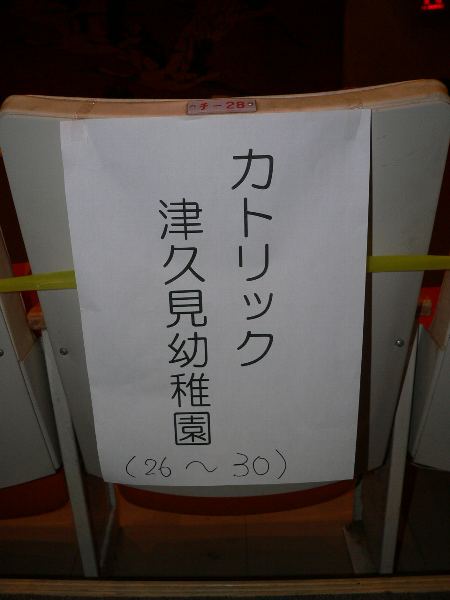 チ-28
カトリック
津久見幼稚園
(26～30)